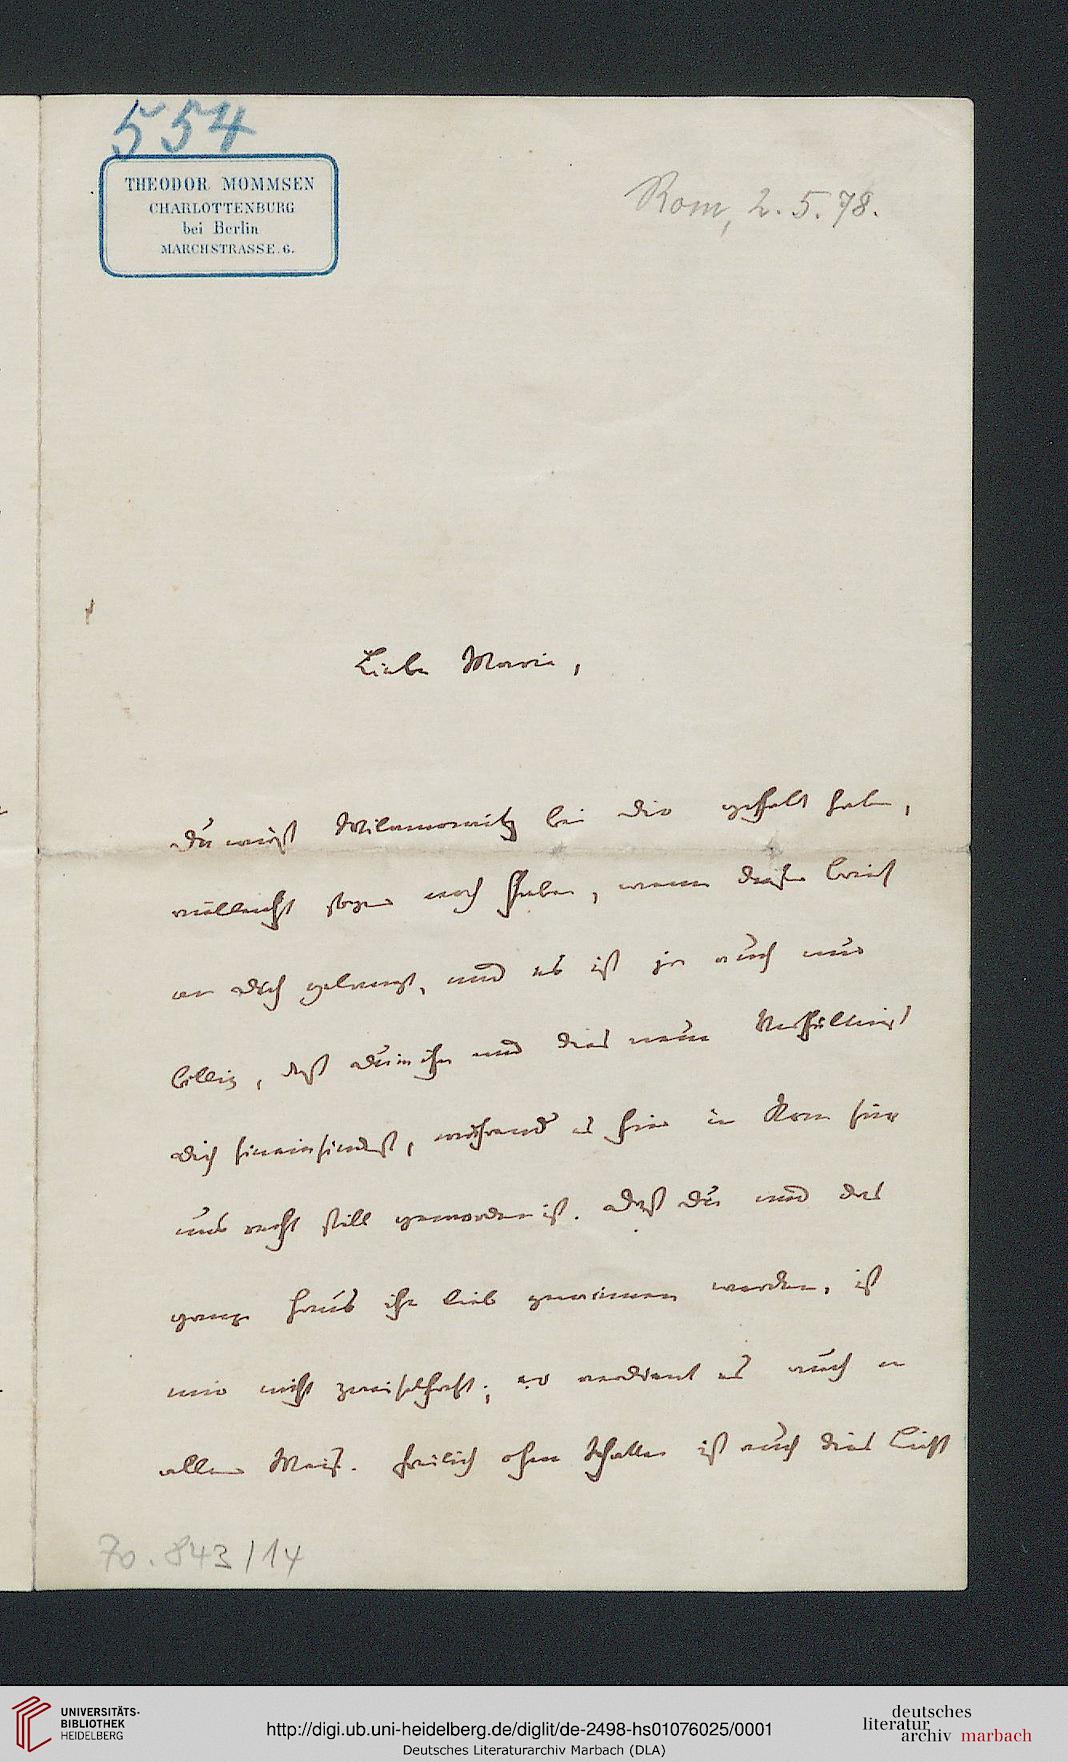 554
THEODOR MOMMSEN
CHARLOTTENBURG
bei Berlin
MARCHSTRASSE. 6.
Rom, 2. 5. 78.
Liebe Marie,
Du wirst Wilamowitz bei dir gehabt haben,
vielleicht sogar noch haben, wenn dieser Brief
an dich gelangt, und es ist ja auch nur
billig, daß du in ihn und dies neue Verhältniß
dich hineinfindest, während es hier in Rom für
uns recht still geworden ist. Daß du und das
ganze Haus ihn lieb gewinnen werden, ist
mir nicht zweifelhaft; er verdient es auch in
aller Weis. Freilich ohne Schatten ist auch dies Licht
70.843/14
UNIVERSITÄTS-
BIBLIOTHEK
HEIDELBERG
http://digi.ub.uni-heidelberg.de/diglit/de-2498-hs01076025/0001
Deutsches Literaturarchiv Marbach (DLA)
deutsches
literatur
archiv marbach